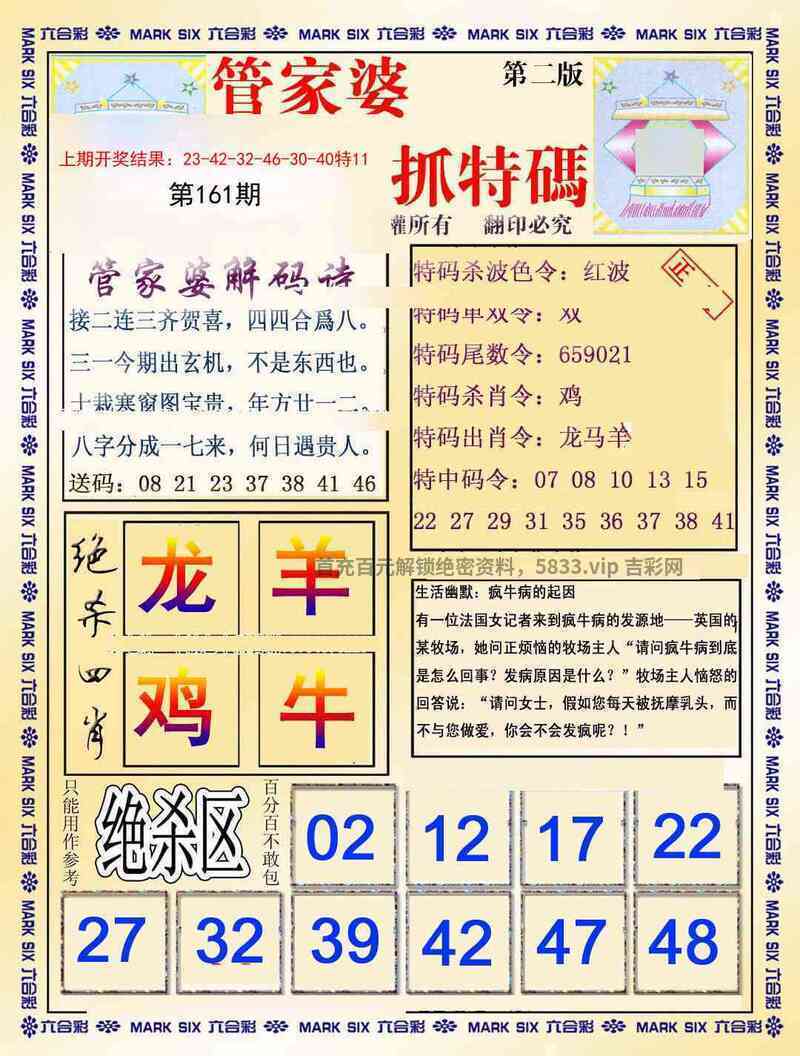 MARK SIX 六合彩 MARK SIX 六合彩 MARK SIX 六合彩 MARK SIX 六合彩 MARK SIX 六合彩
管家婆
第二版
上期开奖结果：23-42-32-46-30-40特11
第161期
抓特碼
权所有 翻印必究
管家婆解码诗
接二连三齐贺喜，四四合爲八。
三一今期出玄机，不是东西也。
十栽寒窗图宝贵，年方廿一二。
八字分成一七来，何日遇贵人。
送码：08 21 23 37 38 41 46
特码杀波色令：红波
正
特码单双令：双
特码尾数令：659021
特码杀肖令：鸡
特码出肖令：龙马羊
特中码令：07 08 10 13 15
22 27 29 31 35 36 37 38 41
绝杀四肖
龙 羊
鸡 牛
首充百元解锁绝密资料，5833.vip 吉彩网
生活幽默：疯牛病的起因
有一位法国女记者来到疯牛病的发源地——英国的
某牧场，她问正烦恼的牧场主人“请问疯牛病到底
是怎么回事？发病原因是什么？”牧场主人恼怒的
回答说：“请问女士，假如您每天被抚摩乳头，而
不与您做爱，你会不会发疯呢？！”
只能用作参考
绝杀区
百分百不敢包
02 12 17 22
27 32 39 42 47 48
六合彩 MARK SIX 六合彩 MARK SIX 六合彩 MARK SIX 六合彩 MARK SIX 六合彩